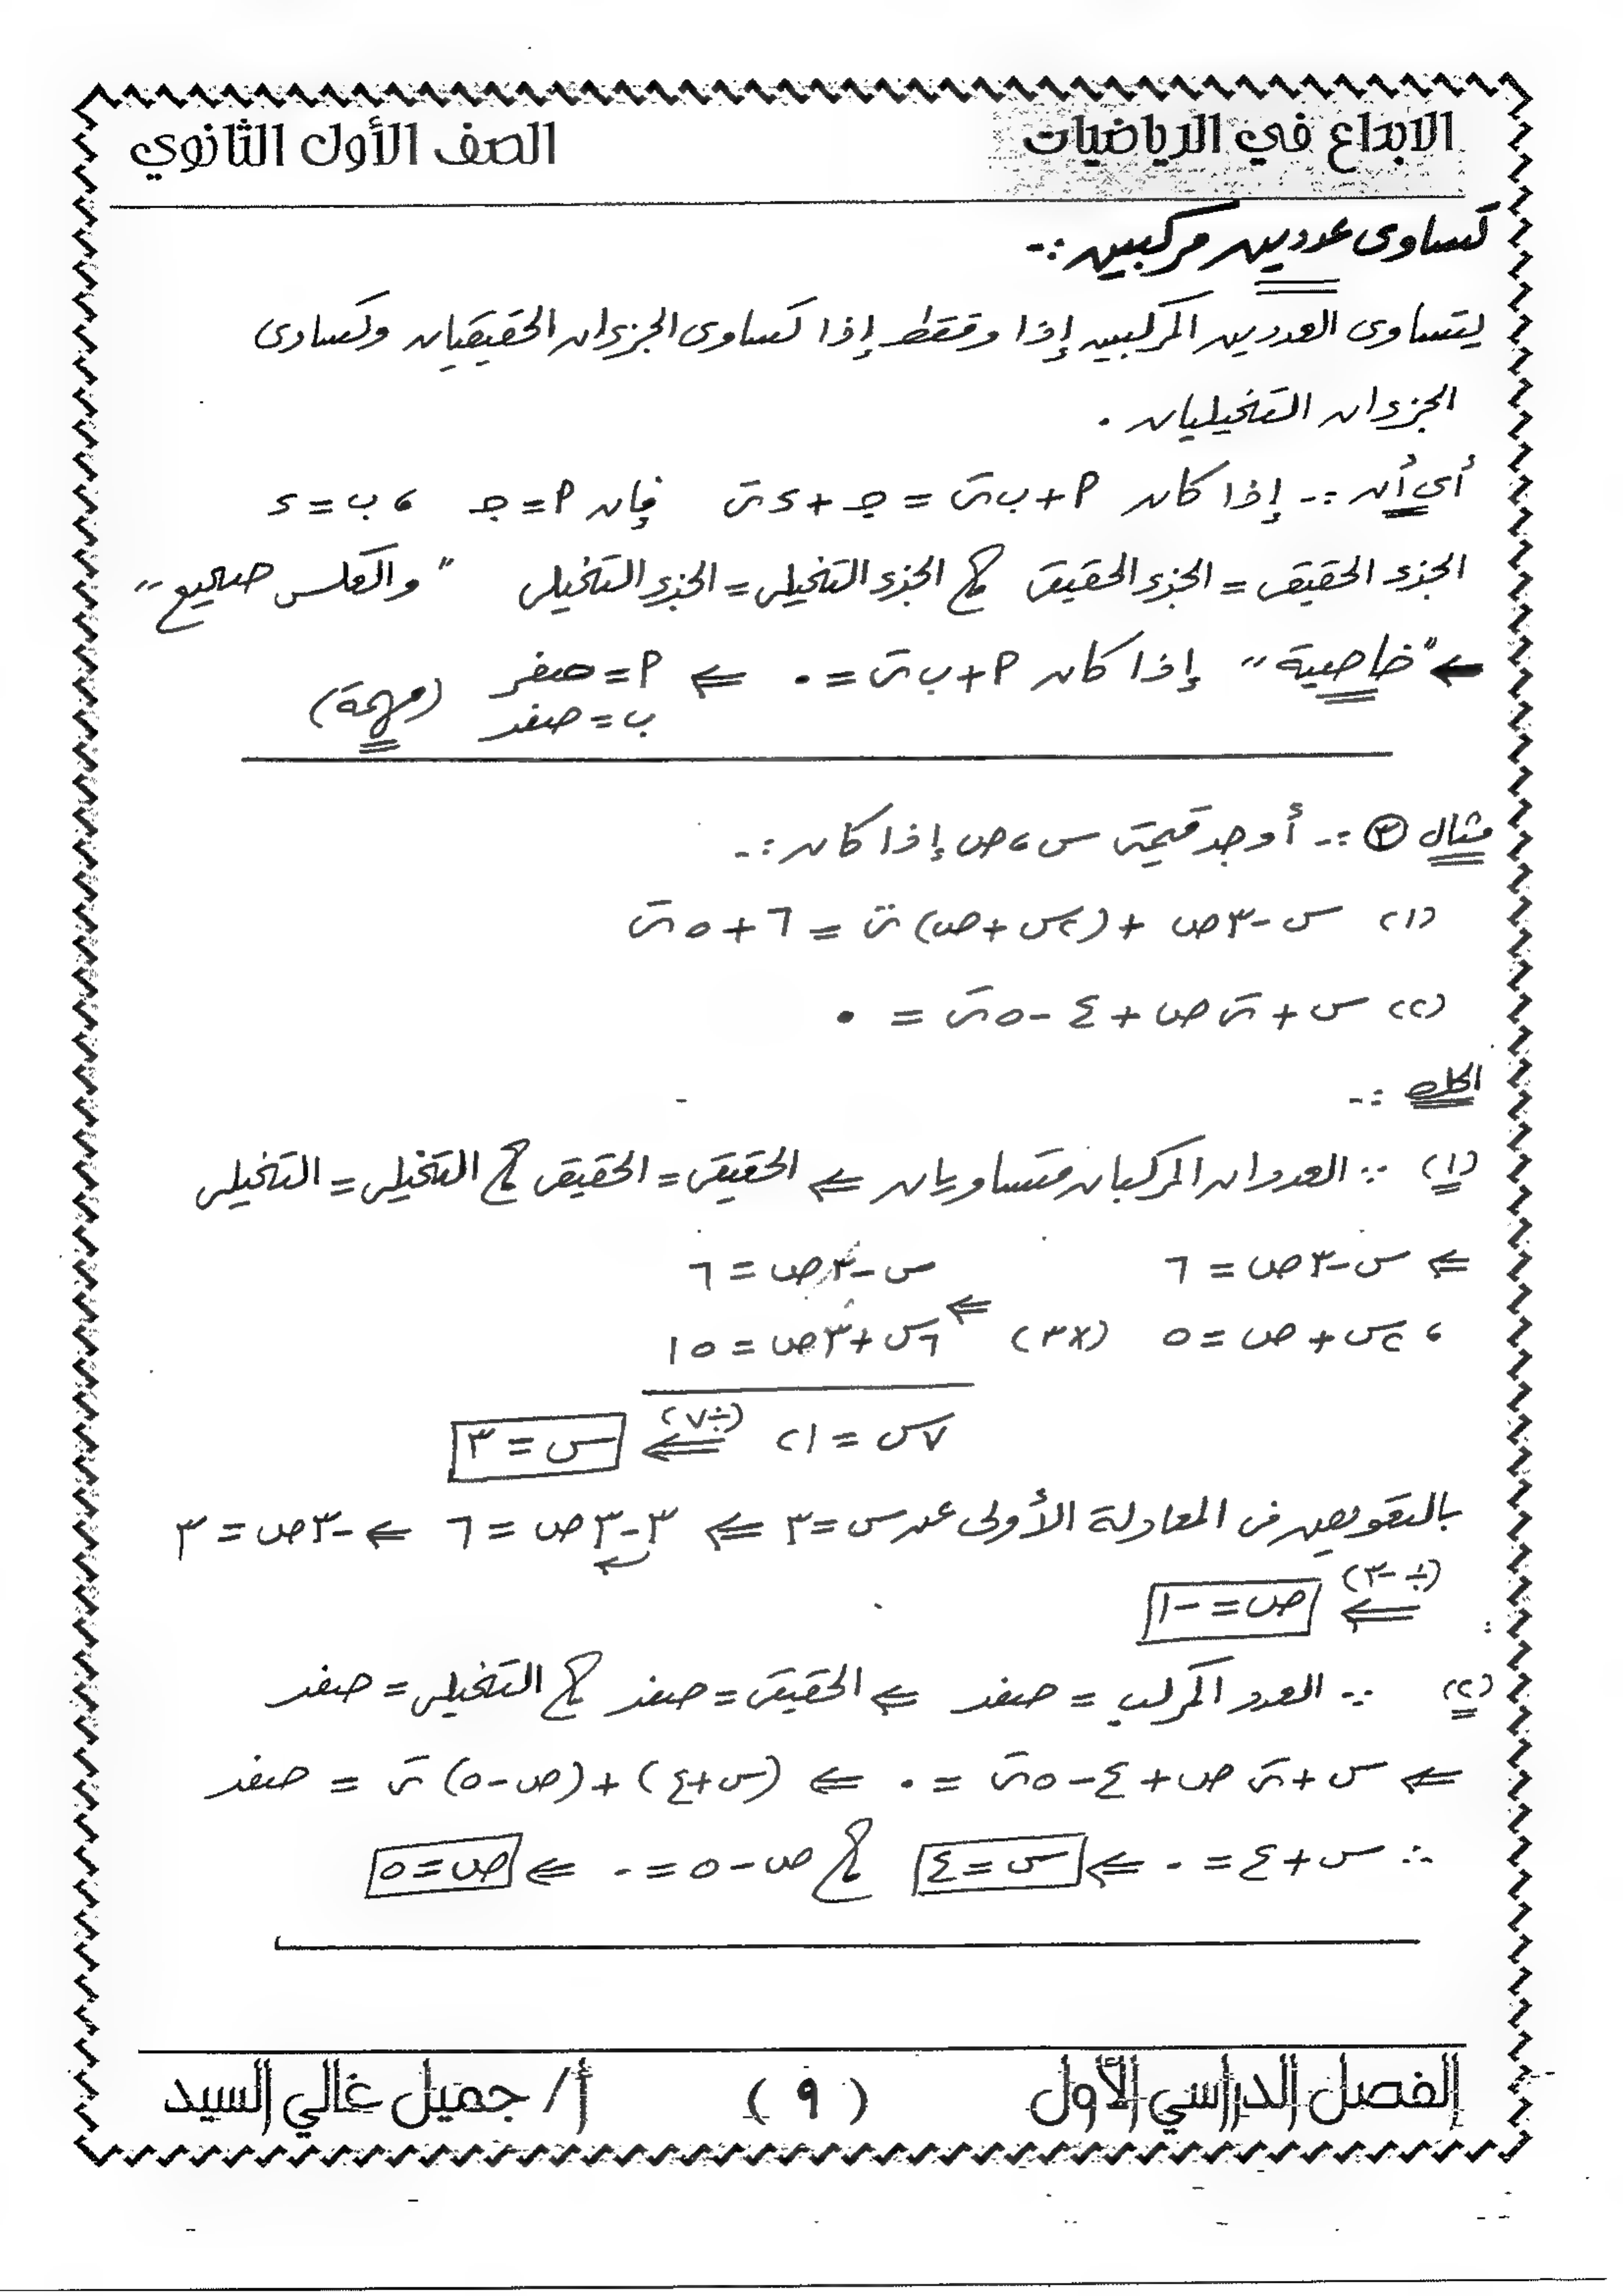 الابداع في الرياضيات
الصف الأول الثانوي
تساوى عددين مركبين :-
يتساوى العددين المركبين إذا وفقط إذا تساوى الجزءان الحقيقيان وتساوى
الجزءان التخيليان .
أى أن :- إذا كان ٩ + ب ت = جـ + د ت فإن ٩ = جـ ، ب = د
الجزء الحقيقى = الجزء الحقيقى ، الجزء التخيلى = الجزء التخيلى " والعكس صحيح "
← " خاصية " إذا كان ٩ + ب ت = ٠ ⇐ ٩ = صفر
ب = صفر (مهمة)
مثال (٣) :- أوجد قيمتى س ، ص إذا كان :-
(١) س - ٣ص + (٢س + ص) ت = ٦ + ٥ ت
(٢) س + ت ص + ٤ - ٥ ت = ٠
الحل :-
(١) ∵ العددان المركبان متساويان ⇐ الحقيقى = الحقيقى ، التخيلى = التخيلى
⇐ س - ٣ص = ٦ س - ٣ص = ٦
، ٢س + ص = ٥ (×٣) ⇐ ٦س + ٣ص = ١٥
٧س = ٢١ (÷٧) ⇐ س = ٣
بالتعويض فى المعادلة الأولى عن س = ٣ ⇐ ٣ - ٣ص = ٦ ⇐ -٣ص = ٣
(÷ -٣) ⇐ ص = -١
(٢) ∵ العدد المركب = صفر ⇐ الحقيقى = صفر ، التخيلى = صفر
⇐ س + ت ص + ٤ - ٥ ت = ٠ ⇐ (س + ٤) + (ص - ٥) ت = صفر
∴ س + ٤ = ٠ ⇐ س = ٤ ، ص - ٥ = ٠ ⇐ ص = ٥
الفصل الدراسي الأول
( ٩ )
أ/ جميل غالي السيد